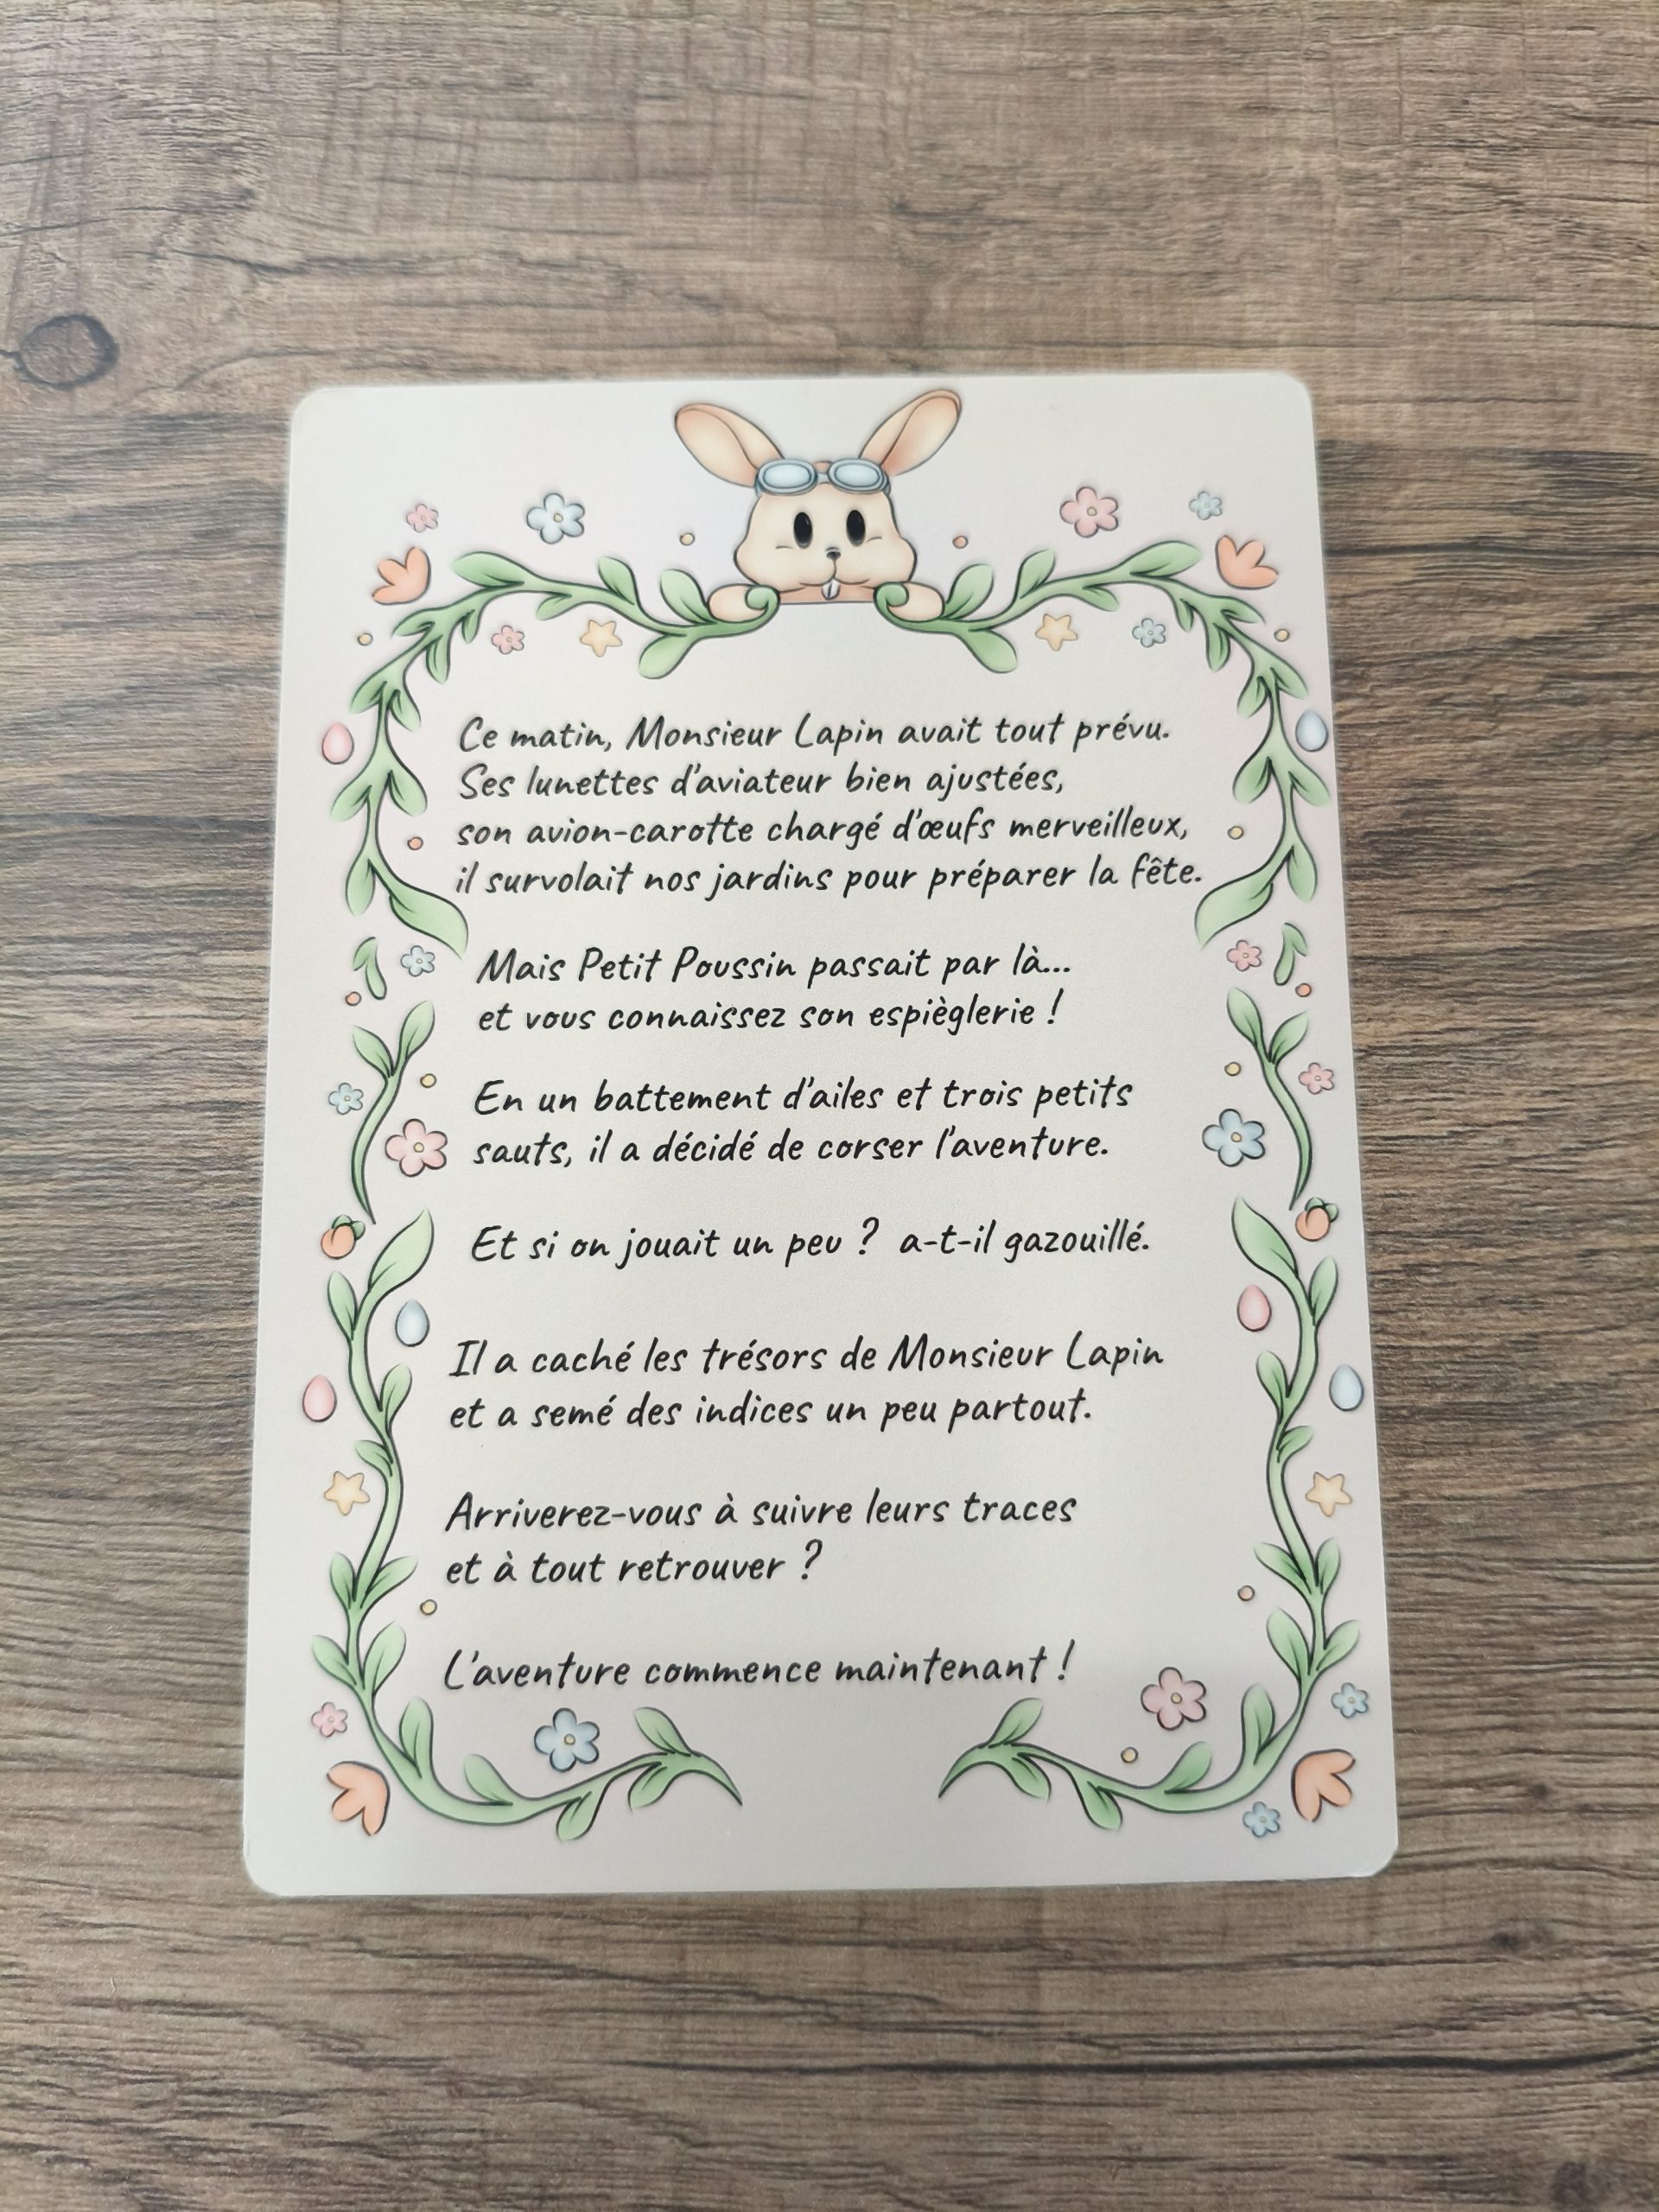 Ce matin, Monsieur Lapin avait tout prévu.
Ses lunettes d'aviateur bien ajustées,
son avion-carotte chargé d'œufs merveilleux,
il survolait nos jardins pour préparer la fête.
Mais Petit Poussin passait par là...
et vous connaissez son espièglerie !
En un battement d'ailes et trois petits
sauts, il a décidé de corser l'aventure.
Et si on jouait un peu ? a-t-il gazouillé.
Il a caché les trésors de Monsieur Lapin
et a semé des indices un peu partout.
Arriverez-vous à suivre leurs traces
et à tout retrouver ?
L'aventure commence maintenant !